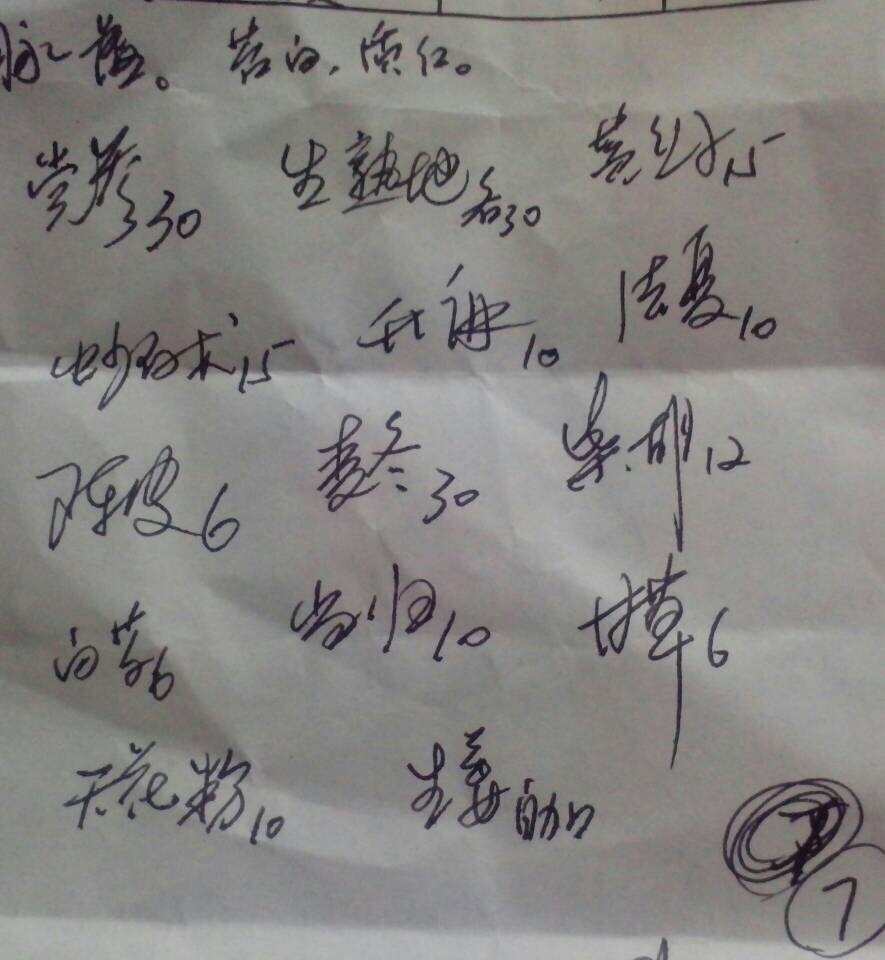 脉 苔白,质红。
党参30 生熟地各30 黄 15
炒白术15 升麻10 法夏10
陈皮6 麦冬30 柴胡12
白芍6 当归10 甘草6
天花粉10 生姜自加
7